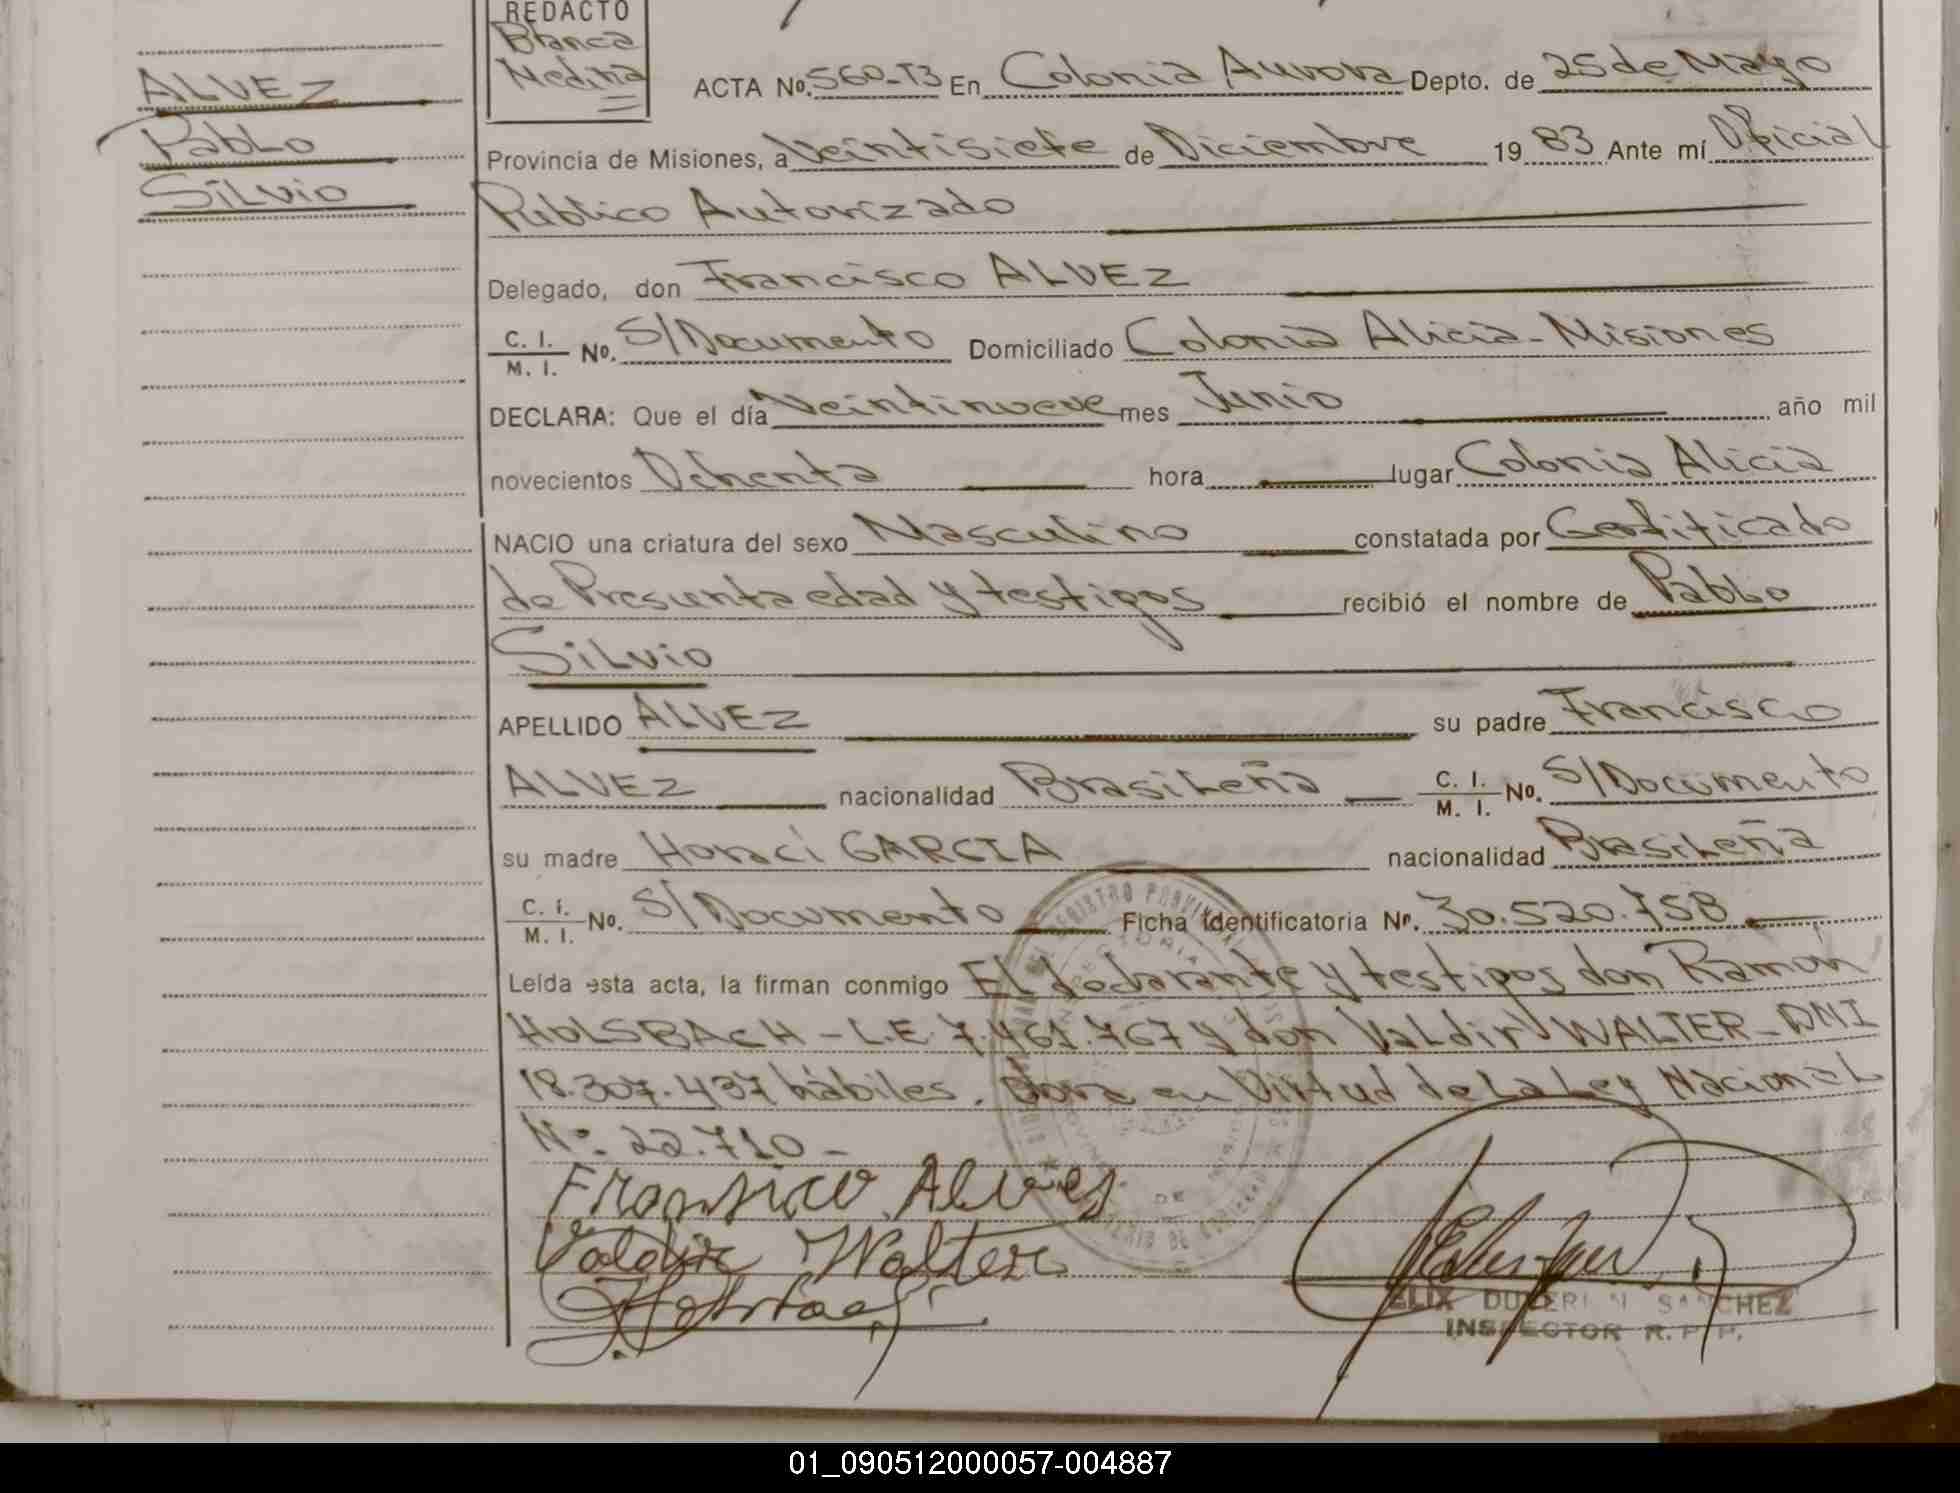 REDACTO
Blanca
Medina
ALVEZ
Pablo
Silvio
ACTA No. 560-T3 En Colonia Aurora Depto. de 25 de Mayo
Provincia de Misiones, a Veintisiete de Diciembre 19 83 Ante mí Oficial
Público Autorizado
Delegado, don Francisco ALVEZ
C. I. / M. I. No. S/Documento Domiciliado Colonia Alicia-Misiones
DECLARA: Que el día Veintinueve mes Junio año mil
novecientos Ochenta hora lugar Colonia Alicia
NACIO una criatura del sexo Masculino constatada por Certificado
de Presunta edad y testigos recibió el nombre de Pablo
Silvio
APELLIDO ALVEZ su padre Francisco
ALVEZ nacionalidad Brasileña C. I. / M. I. No. S/Documento
su madre Horaci GARCIA nacionalidad Brasileña
C. I. / M. I. No. S/Documento Ficha Identificatoria Nº. 30.520.758
Leída esta acta, la firman conmigo El declarante y testigos don Ramón
HOLSBACH - L.E. 7.461.767 y don Valdir WALTER - DNI
18.307.437 hábiles. en Virtud de La Ley Nacional
Nº 22.710 -
Fransico Alves
Valdir Walter
FELIX SANCHEZ
INSPECTOR R. P. P.
01_090512000057-004887